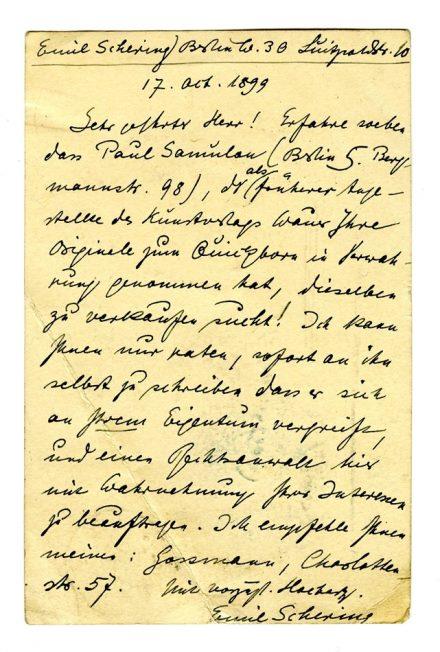 Emil Schering, Berlin W. 30 Luitpoldstr. 10
17. Oct. 1899
Sehr geehrter Herr! Erfahre soeben
dass Paul Samulon (Berlin S. Berg-
mannstr. 98), der (als früherer Ange-
stellte des Kunstverlags Ihre
Originale zum Quickborn in Verwah-
rung genommen hat, dieselben
zu verkaufen sucht! Ich kann
Ihnen nur raten, sofort an ihn
selbst zu schreiben dass er sich
an Ihrem Eigentum vergreift,
und einen Rechtsanwalt hier
mit Wahrnehmung Ihrer Interessen
zu beauftragen. Ich empfehle Ihnen
meinen: Gossmann, Charlotten
str. 57. Mit vorzügl. Hochacht.
Emil Schering